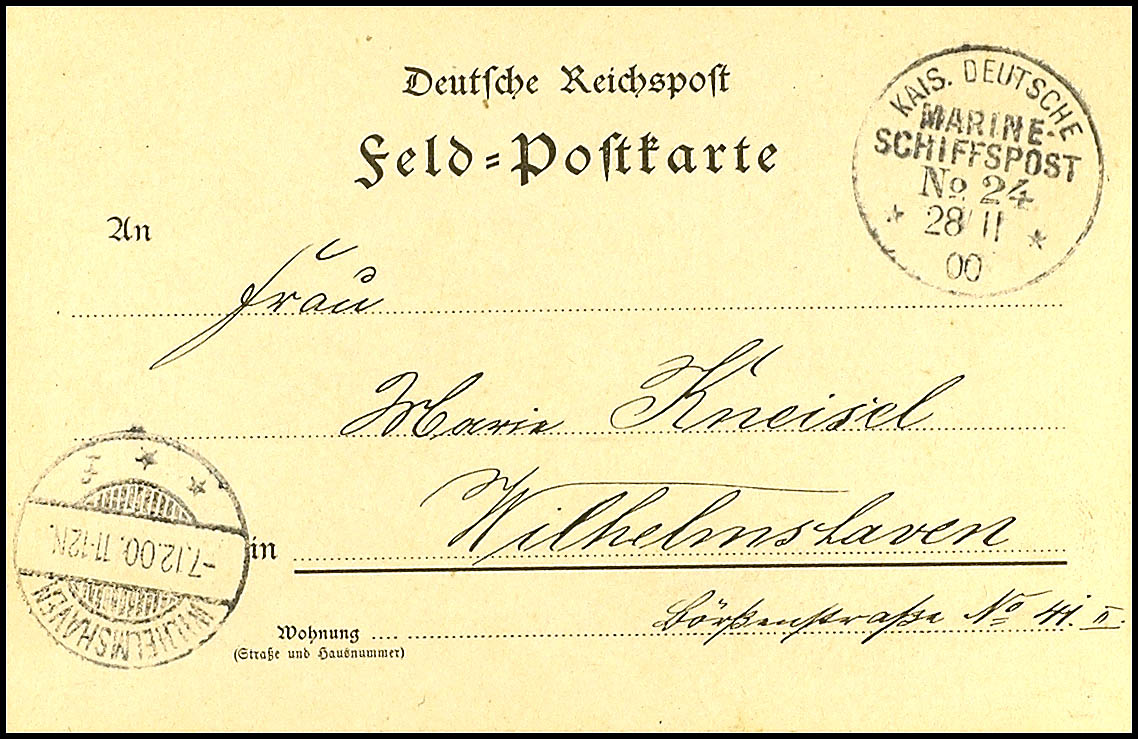 Deutsche Reichspost
Feld=Postkarte
KAIS. DEUTSCHE
MARINE-
SCHIFFSPOST
No 24
28/11
00
An
Frau
Marie Kneisel
in Wilhelmshaven
Wohnung
(Straße und Hausnummer)
Börsenstraße No 41. II.
WILHELMSHAVEN
-7.12.00.11-12N.
* * f